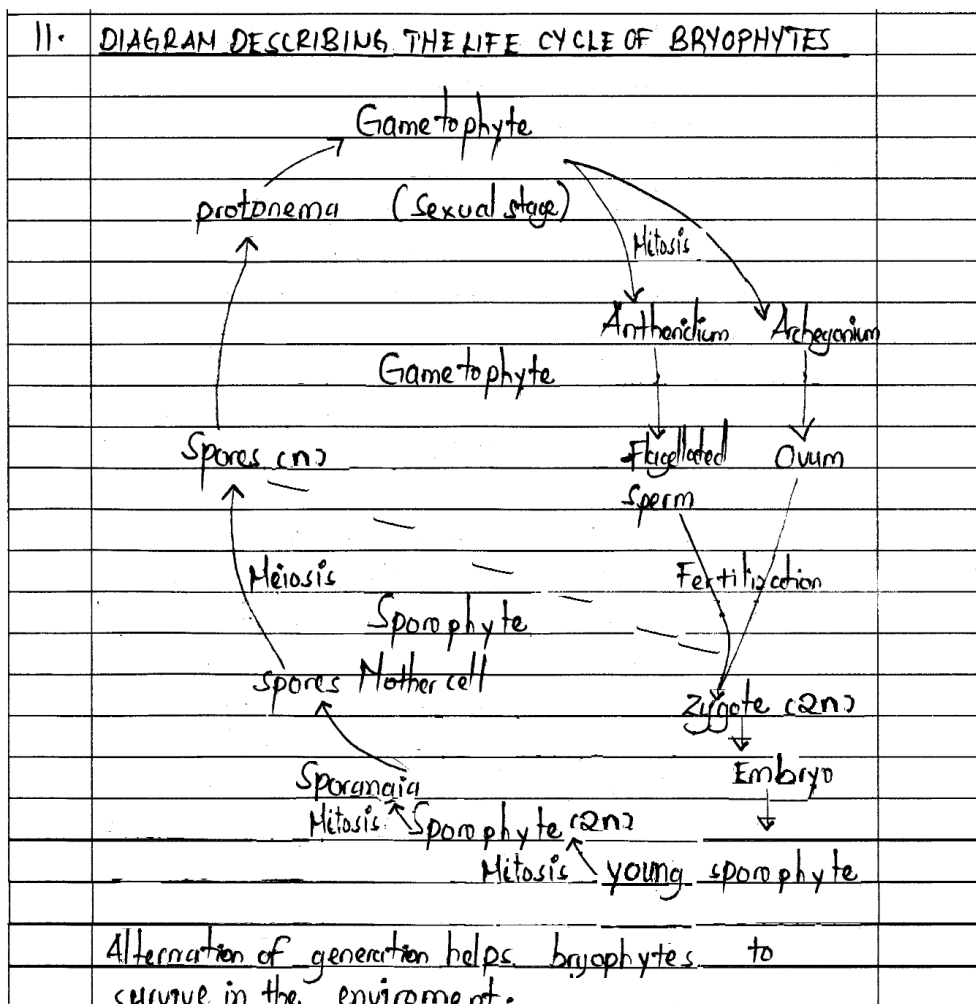 11. DIAGRAM DESCRIBING THE LIFE CYCLE OF BRYOPHYTES
Gametophyte
protonema (Sexual stage)
Mitosis
Antheridium Archegonium
Gametophyte
Spores (n) Flagellated Ovum
sperm
Meiosis Fertilization
Sporophyte
spores Mother cell
Zygote (2n)
Embryo
Sporangia
Mitosis Sporophyte (2n)
Mitosis young sporophyte
Alternation of generation helps bryophytes to
survive in the enviroment.